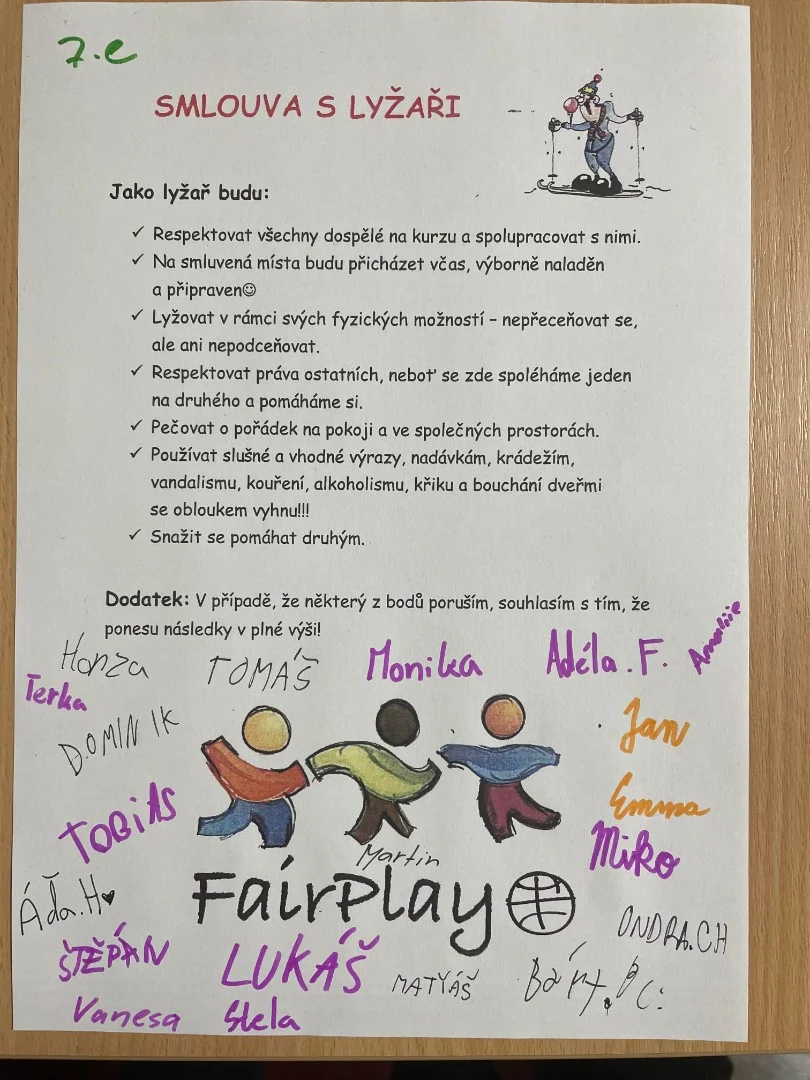 7.C
SMLOUVA S LYŽAŘI
Jako lyžař budu:
✓ Respektovat všechny dospělé na kurzu a spolupracovat s nimi.
✓ Na smluvená místa budu přicházet včas, výborně naladěn
a připraven☺
✓ Lyžovat v rámci svých fyzických možností – nepřeceňovat se,
ale ani nepodceňovat.
✓ Respektovat práva ostatních, neboť se zde spoléháme jeden
na druhého a pomáháme si.
✓ Pečovat o pořádek na pokoji a ve společných prostorách.
✓ Používat slušné a vhodné výrazy, nadávkám, krádežím,
vandalismu, kouření, alkoholismu, křiku a bouchání dveřmi
se obloukem vyhnu!!!
✓ Snažit se pomáhat druhým.
Dodatek: V případě, že některý z bodů poruším, souhlasím s tím, že
ponesu následky v plné výši!
Honza TOMÁŠ Monika Adéla.F. Amálie
Terka
DOMINIK Jan
TOBIAS Emma
Martin Miko
Áďa.H♥ FairPlay
ONDRA.CH
ŠTĚPÁN LUKÁŠ MATYÁŠ
Vanesa Stela